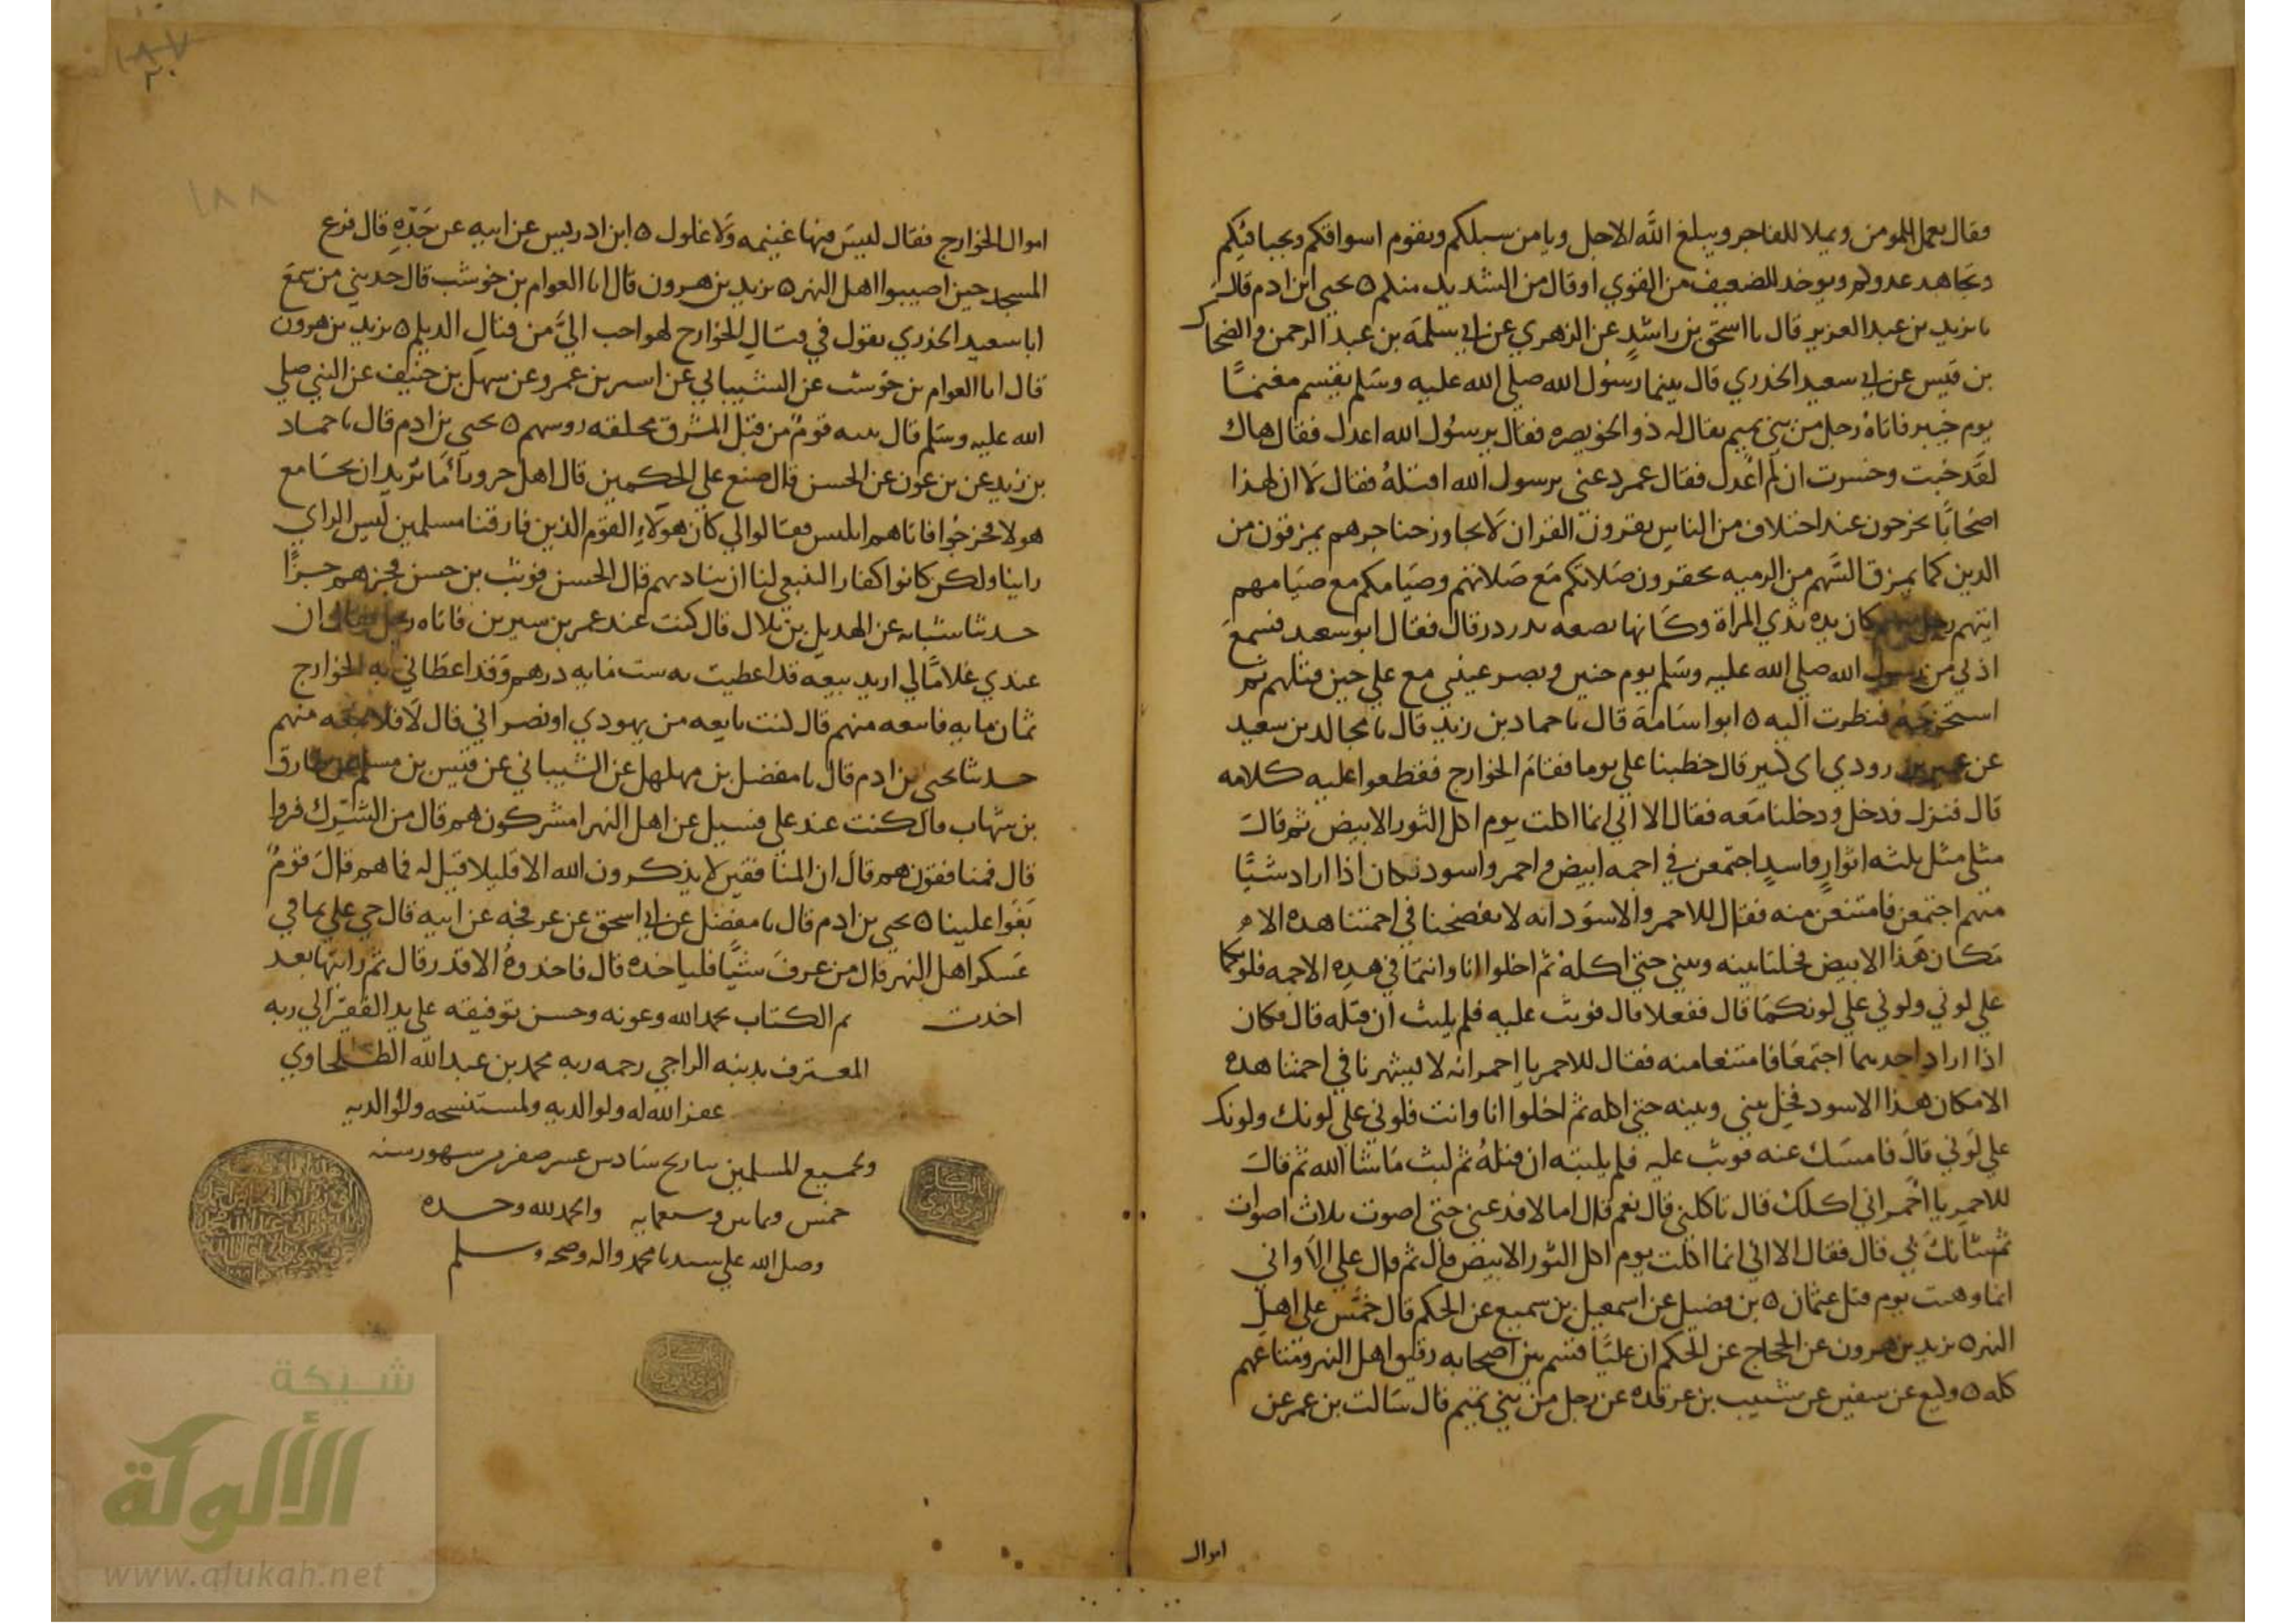 فقال يعمل المومن ويملا للفاجر ويبلغ الله الاجل ويامن سبلكم ويقوم اسواقكم ويجبا فيكم
ويجاهد عدوكم ويوخذ للضعيف من القوي او قال من الشديد منكم ٥ يحيى ابن ادم قال
نا يزيد بن عبد العزيز قال نا اسحق بن راشد عن الزهري عن ابي سلمة بن عبد الرحمن والضحاك
بن قيس عن ابي سعيد الخدري قال بينما رسول الله صلى الله عليه وسلم يقسم مغنما
يوم خيبر فاتاه رجل من بني تميم يقال له ذو الخويصره فقال يرسول الله اعدل فقال هاك
لقد خبت وخسرت ان لم اعدل فقال عمر دعني يرسول الله اقتله فقال لا ان لهذا
اصحابا يخرجون عند اختلاف من الناس يقرون القران لا يجاوز حناجرهم يمرقون من
الدين كما يمرق السهم من الرميه يحقرون صلاتكم مع صلاتهم وصيامكم مع صيامهم
ايتهم رجل منهم كان يده ثدي المراة وكانها بضعه تدردر قال فقال ابو سعيد فسمع
اذني من رسول الله صلى الله عليه وسلم يوم حنين وبصر عيني مع علي حين قتلهم ثم
استخرجه فنظرت اليه ٥ ابو اسامة قال نا حماد بن زيد قال نا مجالد بن سعيد
عن عمير بن رودي ابي كبير قال خطبنا علي يوما فقام الخوارج فقطعوا عليه كلامه
قال فنزل فدخل ودخلنا معه فقال الا اني انما اكلت يوم اكل الثور الابيض ثم قال
مثلي مثل ثلثه اثوار واسد اجتمعن في اجمه ابيض واحمر واسود فكان اذا اراد شيا
منهم اجتمعن فامتنعن منه فقال للاحمر والاسود انه لا يفضحنا في اجمتنا هذه الا
مكان هذا الابيض فخليا بينه وبيني حتى اكله ثم اخلوا انا وانتما في هذه الاجمه فلونكما
علي لوني ولوني علي لونكما قال ففعلا قال فوثب عليه فلم يلبث ان قتله قال فكان
اذا اراد احدهما اجتمعا فامتنعا منه فقال للاحمر يا احمر انه لا يشهرنا في اجمتنا هذه
الا مكان هذا الاسود فخل بيني وبينه حتى اكله ثم اخلوا انا وانت فلوني علي لونك ولونك
علي لوني قال فامسك عنه فوثب عليه فلم يلبثه ان قتله ثم لبث ما شا الله ثم قال
للاحمر يا احمر اني اكلك قال تاكلني قال نعم قال اما لا فدعني حتى اصوت ثلاث اصوات
ثم شانك بي قال فقال الا اني انما اكلت يوم اكل الثور الابيض قال ثم قال علي الا واني
انما وهنت يوم قتل عثمان ٥ بن فضيل عن اسمعيل بن سميع عن الحكم قال خمس علي اهل
النهر ٥ يزيد بن هرون عن الحجاج عن الحكم ان عليا قسم بين اصحابه رقيق اهل النهر ومتاعهم
كله ٥ وكيع عن سفين عن شبيب بن غرقده عن رجل من بني تميم قال سالت بن عمر عن
اموال
اموال الخوارج فقال ليس فيها غنيمه ولا غلول ٥ ابن ادريس عن ابيه عن جده قال فزع
المسجد حين اصيبوا اهل النهر ٥ يزيد بن هرون قال انا العوام بن حوشب قال حدثني من سمع
ابا سعيد الخدري يقول في قتال الخوارج لهو احب الي من قتال الديلم ٥ يزيد بن هرون
قال انا العوام بن حوشب عن الشيباني عن اسير بن عمرو عن سهل بن حنيف عن النبي صلى
الله عليه وسلم قال يتيه قوم من قبل المشرق محلقه روسهم ٥ يحيى بن ادم قال نا حماد
بن زيد عن بن عون عن الحسن قال صنع علي الحكمين قال اهل حرورا ما تريد ان تجامع
هولا فخرجوا فاتاهم ابليس فقالوا لي كان هولاء القوم الذين فارقنا مسلمين ليس الراي
راينا ولكن كانوا كفارا لينبغي لنا ان ينادهم قال الحسن فوثب بن حسن فجزهم جزا
حدثنا شبابه عن الهذيل بن بلال قال كنت عند عمر بن سيرين فاتاه رجل فقال ان
عندي غلاما لي اريد بيعه قد اعطيت به ست مايه درهم وقد اعطاني به الخوارج
ثمان مايه فابيعه منهم قال كنت بايعه من يهودي او نصراني قال لا فلا تبعه منهم
حدثنا يحيى بن ادم قال نا مفضل بن مهلهل عن الشيباني عن قيس بن مسلم عن طارق
بن شهاب قال كنت عند علي فسيل عن اهل النهر امشركون هم قال من الشرك فروا
قال فمنافقون هم قال ان المنافقين لا يذكرون الله الا قليلا قيل له فما هم قال قوم
بغوا علينا ٥ يحيى بن ادم قال نا مفضل عن ابي اسحق عن عرفجه عن ابيه قال جي علي بما في
عسكر اهل النهر قال من عرف شيا فلياخذه قال فاخذوه الا قدر قال ثم رايتها بعد
اخذت تم الكتاب بحمد الله وعونه وحسن توفيقه علي يد الفقير الي ربه
المعترف بذنبه الراجي رحمه ربه محمد بن عبد الله الطلحاوي
غفر الله له ولوالديه ولمستنسخه ولوالديه
ولجميع المسلمين بتاريخ سادس عشر صفر من شهور سنه
خمس وثمانين وسبعمايه والحمد لله وحده
وصلى الله علي سيدنا محمد واله وصحبه وسلم
١٨٧
٢٠
١٨٨
شبكة
الألوكة
www.alukah.net